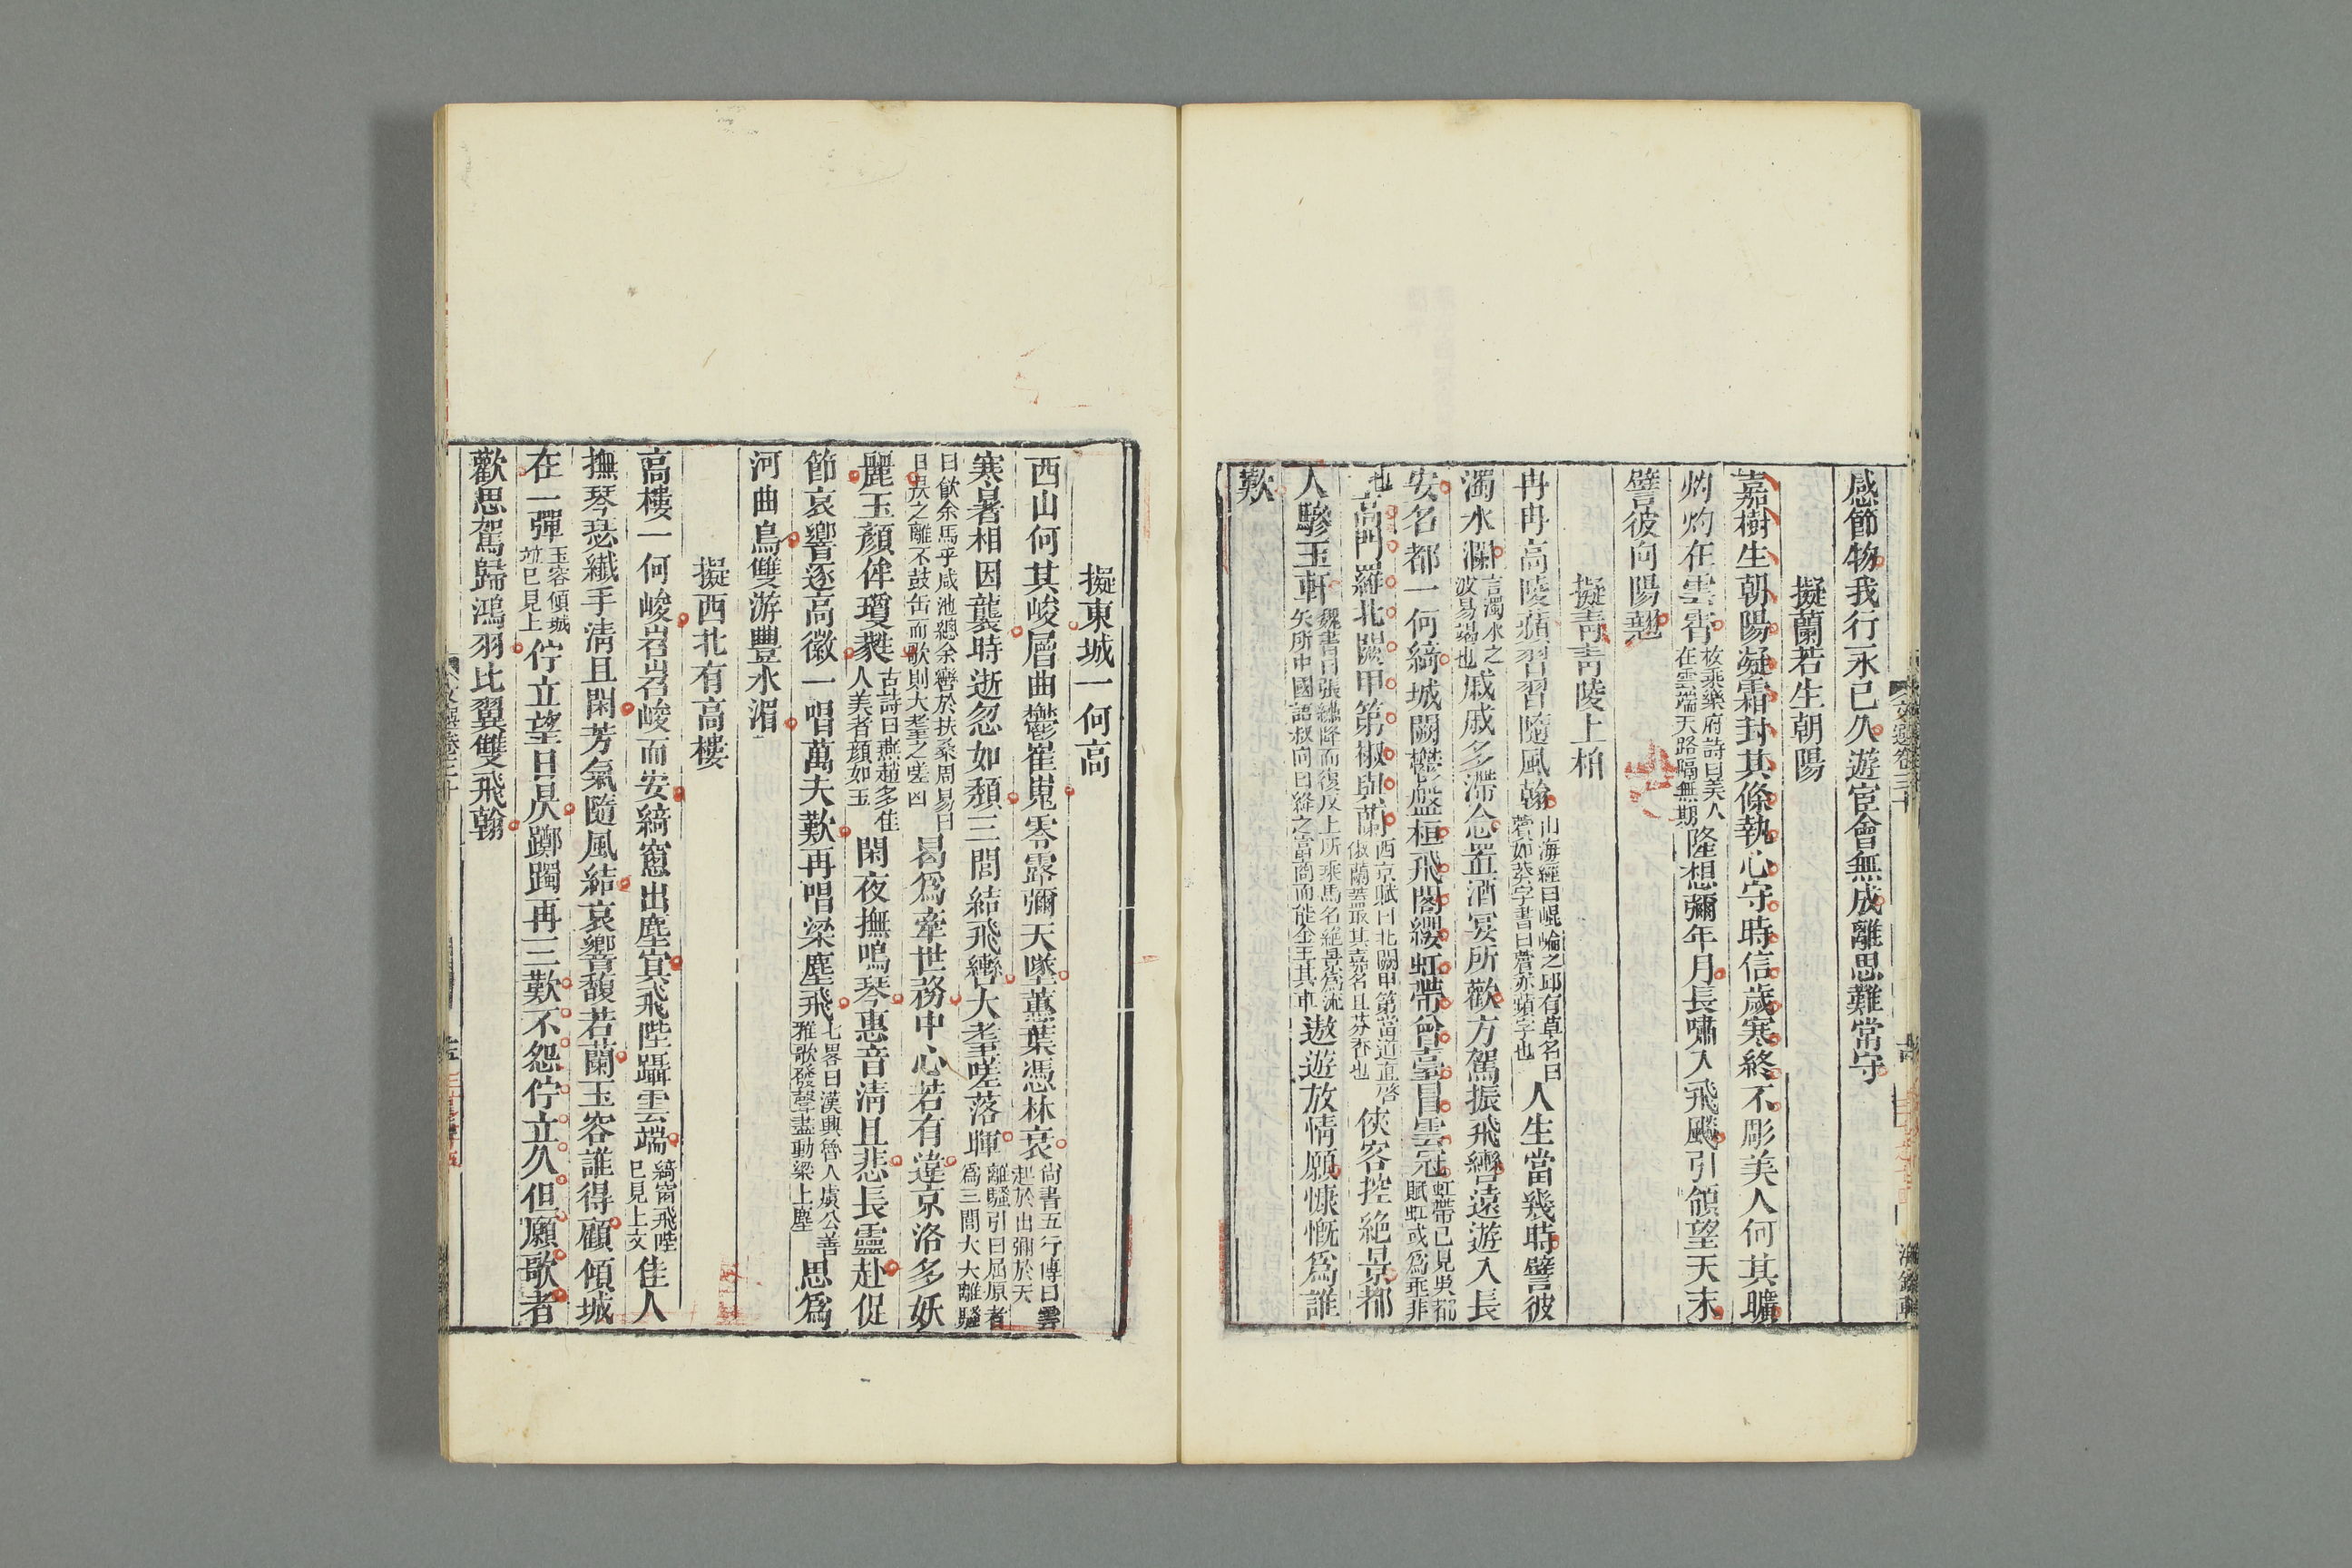 感節物我行永已久遊宦會無成離思難常守
擬蘭若生朝陽
嘉樹生朝陽凝霜封其條執心守時信歲寒終不彫美人何其曠
灼灼在雲霄枚乘樂府詩曰美人在雲端天路隔無期隆想彌年月長嘯入飛飈引領望天末
譬彼向陽翹
擬青青陵上柏
冉冉高陵蘋習習隨風翰山海經曰崐崘之邱有草名曰薲如葵字書曰薲亦蘋字也人生當幾時譬彼
濁水瀾言濁水之波易竭也戚戚多滯念置酒宴所歡方駕振飛轡遠遊入長
安名都一何綺城闕鬱盤桓飛閣纓虹帶曾臺冒雲冠虹帶已見吳都賦虹或為垂非
也高門羅北闕甲第椒與蘭西京賦曰北闕甲第當道直啓俶蘭蓋取其嘉名且芬香也俠客控絶景都
人驂玉軒魏書曰張繡降而復反上所乘馬名絶景為流矢所中國語叔向曰絳之富商而能金玉其車遨遊放情願慷慨為誰
歎
擬東城一何高
西山何其峻層曲鬱崔嵬零露彌天墜蕙葉憑林衰尚書五行傳曰雲起於山彌於天
寒暑相因襲時逝忽如頽三閭結飛轡大耋嗟落暉離騷引曰屈原者為三閭大夫離騷
曰飲余馬乎咸池總余轡於扶桑周易曰日昃之離不鼓缶而歌則大耋之嗟凶曷為牽世務中心若有違京洛多妖
麗玉顏侔瓊蕤古詩曰燕趙多佳人美者顏如玉閑夜撫鳴琴惠音清且悲長靈赴促
節哀響逐高徽一唱萬夫歎再唱梁塵飛七畧曰漢興魯人虞公善雅歌發聲盡動梁上塵思為
河曲鳥雙游豐水湄
擬西北有高樓
高樓一何峻岧岧峻而安綺窻出塵冥飛陛躡雲端綺窗飛陛已見上文佳人
撫琴瑟纖手清且閑芳氣隨風結哀響馥若蘭玉容誰得顧傾城
在一彈玉容傾城竝已見上佇立望日昃躑躅再三歎不怨佇立久但願歌者
歡思駕歸鴻羽比翼雙飛翰